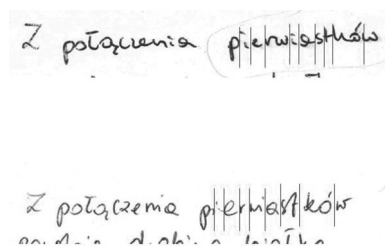 Z połączenia pierwiastków
Z połączenia pierwiastków